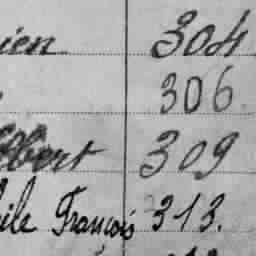 ien 304
306
lbert 309
ile François 313.